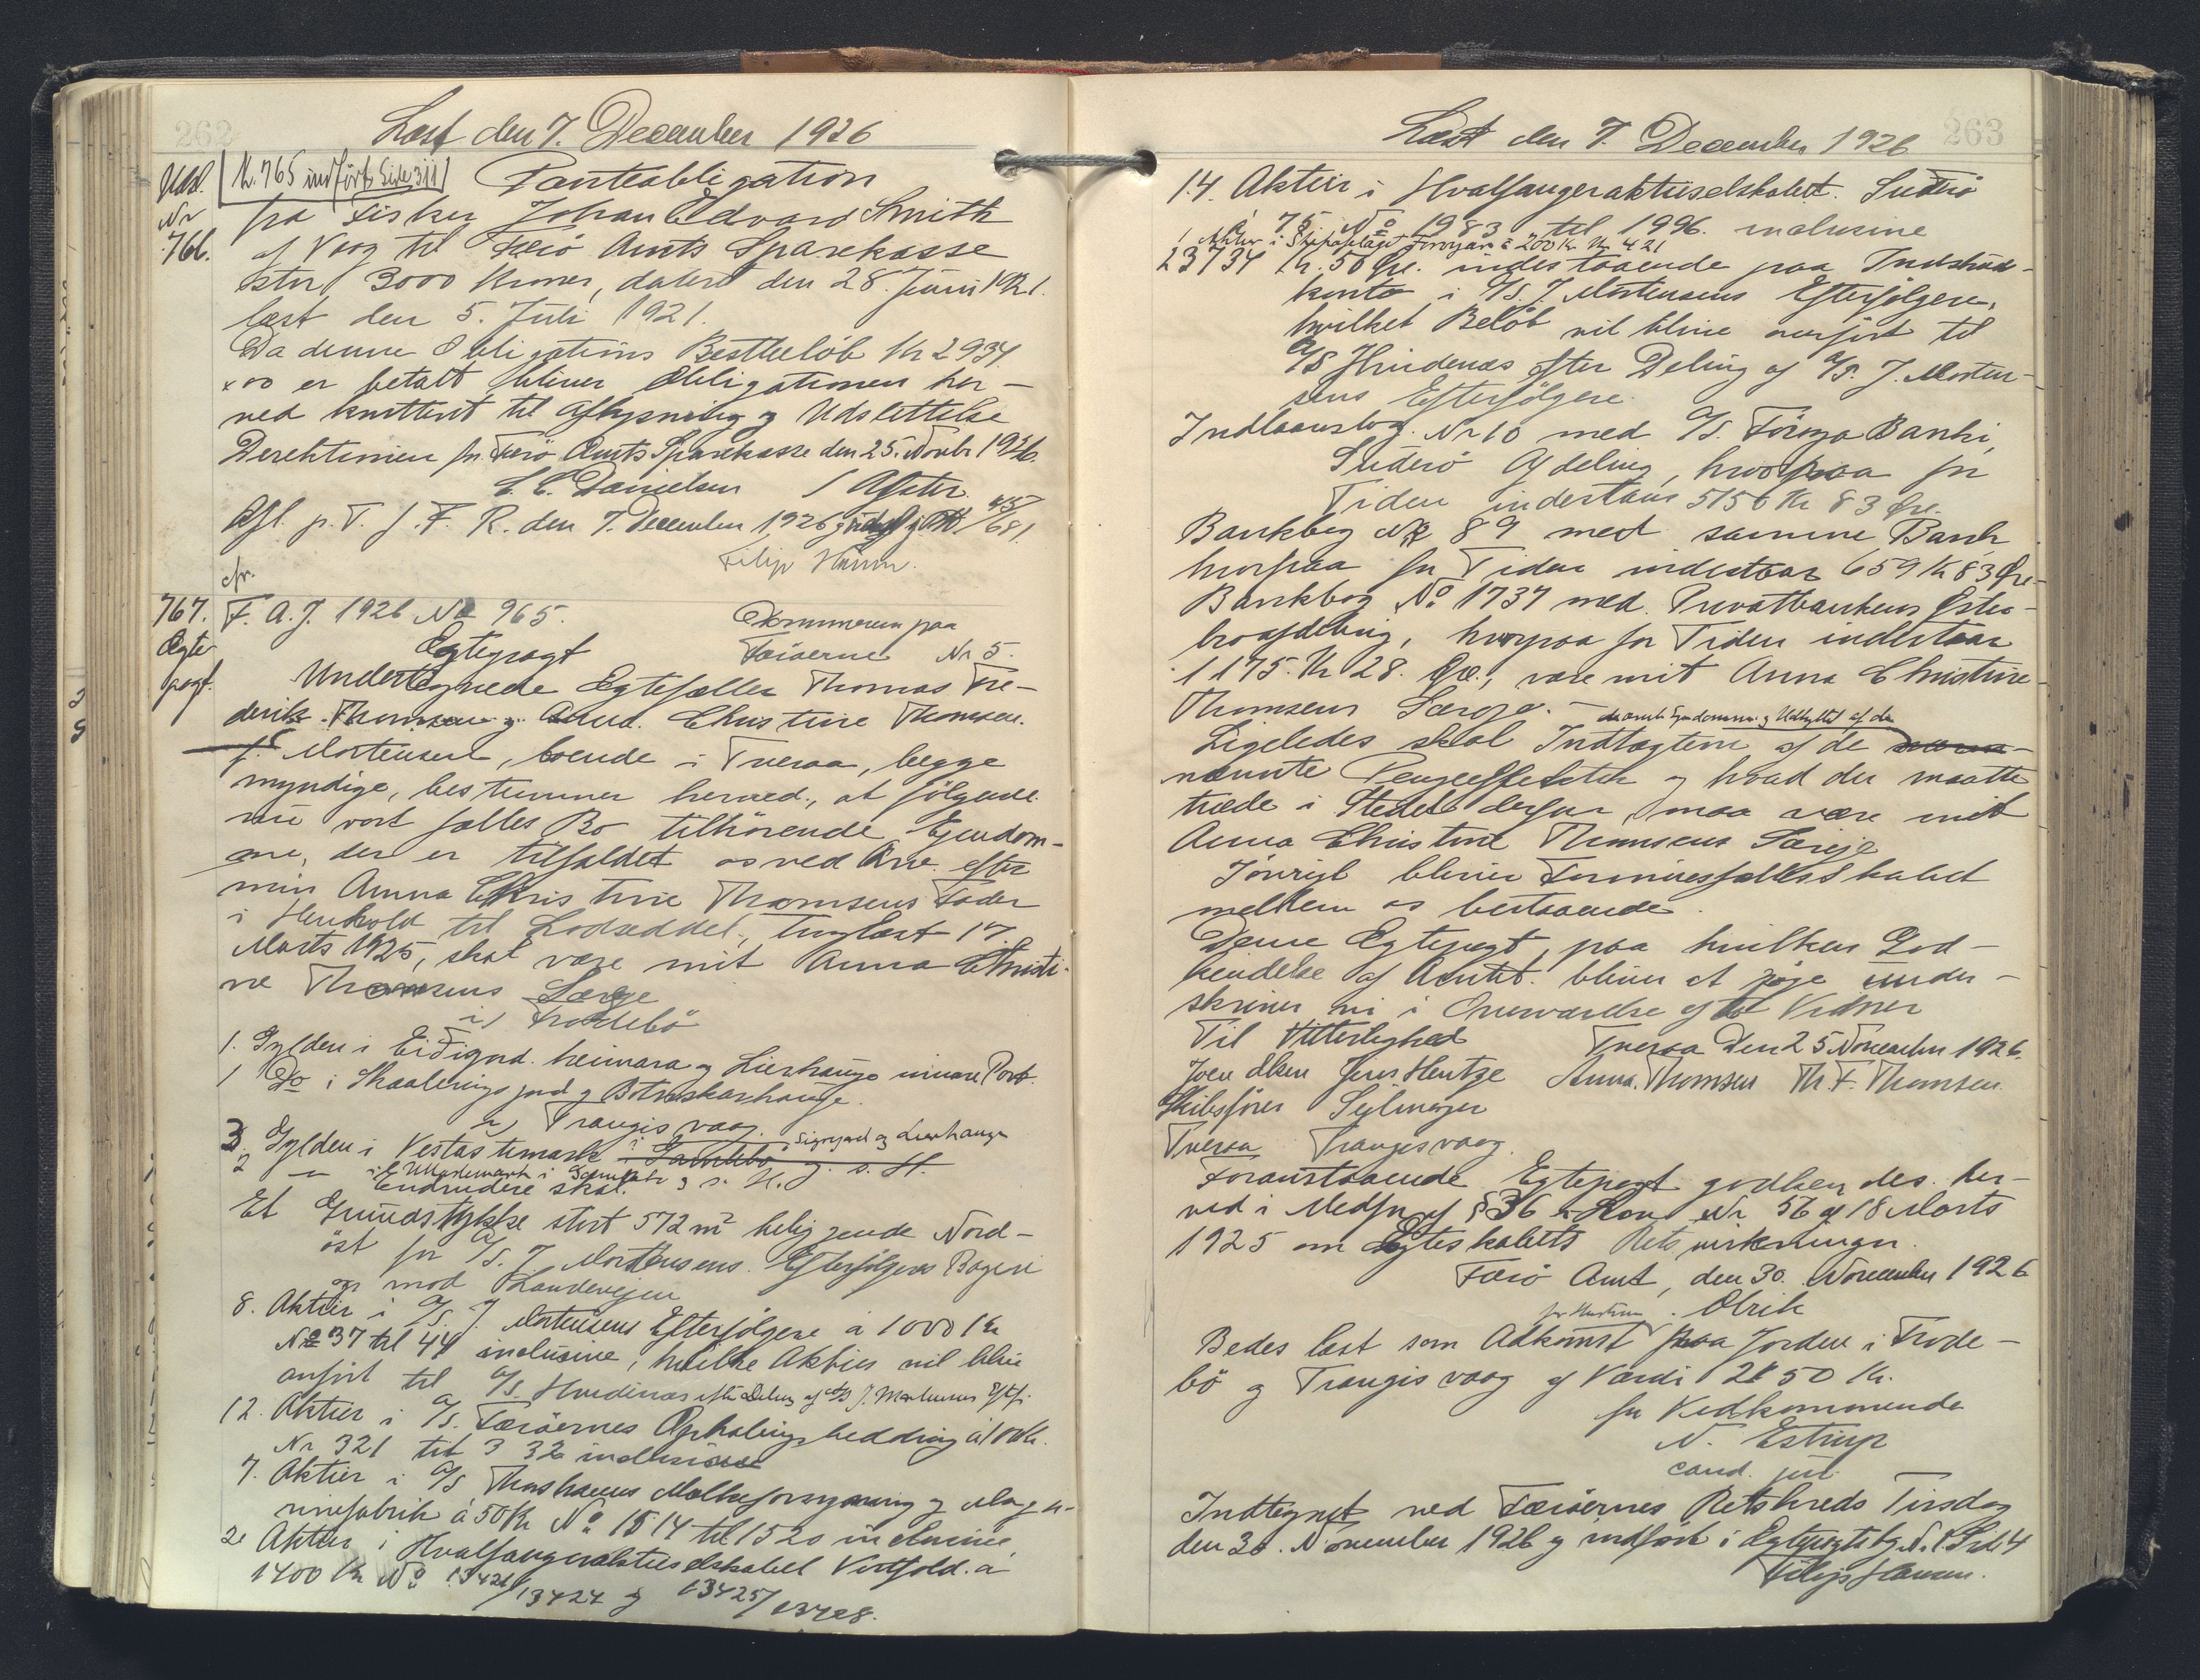 262
Læst den 7. December 1926
Udsl. Nr. 765 indført Side 311 Panteobligation
Nr fra Fisker Johan Edvard Smith
766. af Vaag til Færø Amts Sparekasse
stor 3000 Kroner, dateret den 28. Juni 1921.
læst den 5. Juli 1921.
Da denne Obligations Restbeløb Kr 2934
x 00 er betalt bliver Obligationen her-
ved kvitteret til Aflysning og Udslettelse
Direktionen for Færø Amts Sparekasse den 25. Novbr 1926.
C. C. Danielsen
Afl. p. T. f. F. R. den 7. December 1926
Filip Hansen.
cfr.
767. F. A. J. 1926 No 965. Økonomien paa
Ægte- Ægtepagt Færøerne Nr 5.
pagt. Undertegnede Ægtefæller Thomas Fre-
derik Thomsen og Anna Christine Thomsen
f. Mortensen, boende i Tveraa, begge
myndige, bestemmer herved, at følgende
nu vort fælles Bo tilhørende Ejendom-
me, der er tilfaldet os ved Arv efter
min Anna Christine Thomsens Fader
i Henhold til Lodseddel, tinglæst 17.
Marts 1925, skal være mit Anna Christi-
ne Thomsens Særeje
i, Frodebø
1. Gylden i Eidigard heimara og Lierhauge innare Part.
1 Do i Skaalerings jord og Botnskarhauge.
i, Trangisvaag.
3 Gylden i Vestastemark i Jamnebø g. s. H. Sigvgjord og Lierhauge
2 — i Uttastemark i Jamnebø g s. H.
Endvidere skal.
Et Grundstykke stort 572 m² beliggende Nord-
øst for A/S. J. Mortensens Efterfølgeres Bageri
og mod Landevejen
8. Aktier i A/S. J. Mortensens Efterfølgere á 1000 Kr
No 37 til 44 inclusive, hvilke Aktier vil blive
anført til A/S. Hvidenæs efter Deling af A/S J. Mortensens Eftf.
12. Aktier i A/S. Færøernes Ophalingsbedding á 100 Kr.
Nr 321 til 332 inclusive
7. Aktier i A/S Thorshavns Mælkeforsyning og Marga-
rinefabrik á 50 Kr No 1514 til 1520 inclusive
2 Aktier i Hvalfangeraktieselskabet Vestfold á
1400 Kr No 13421/13424 og 13425/13428.
263
Læst den 7. December 1926
14. Aktier i Hvalfangeraktieselskabet Suderø
á 75 No 1983 til 1996. inclusive
1 Aktie i Skipafelagið Føroyar á 200 Kr Nr 421
23734 Kr. 50 Øre. indestaaende paa Indskuds-
konto i A/S. J. Mortensens Efterfølgere,
hvilket Beløb vil blive overført til
A/S Hvidenæs efter Deling af A/S. J. Morten-
sens Efterfølgere.
Indlaansbog Nr 10 med A/S. Føroya Banki,
Suderø Afdeling, hvorpaa for
Tiden indestaar 5156 Kr 83 Øre.
Bankbog Nr 89 med samme Bank
hvorpaa for Tiden indestaar 659 Kr 83 Øre-
Bankbog No 1737 med Privatbankens Øster-
broafdeling, hvorpaa for Tiden indestaar
1175. Kr 28. Øre., være mit Anna Christine
Thomsens Særeje. —
Ligeledes skal Indtægterne af de nævnte Ejendomme og Udbyttet af de
nævnte Pengeeffekter og hvad der maatte
træde i Stedet derfor, maa være mit
Anna Christine Thomsens Særeje
Iøvrigt bliver Formuesfællesskabet
mellem os bestaaende.
Denne Ægtepagt, paa hvilken God-
kendelse af Amtet bliver at søge under-
skriver vi i Overværelse af to Vidner
Til Vitterlighed Tveraa Den 25 November 1926.
Joen Olsen Jens Hentze Anna Thomsen Th. F. Thomsen.
Skibsfører Sejlmager
Tveraa Trangisvaag.
Foranstaaende Ægtepagt godkendes her-
ved i Medfør af § 36 i Lov Nr 56 af 18 Marts
1925 om Ægteskabets Retsvirkninger.
Færø Amt, den 30. November 1926
Olrik
for Hustruen
Bedes læst som Adkomst paa Jorden i Frode-
bø og Trangisvaag af Værdi 2850 Kr.
for Vedkommende
N. Estrup
cand. jur.
Indtegnet ved Færøernes Retskreds Tirsdag
den 30. November 1926 og indført i Ægtepagtsbog N. 1 Side 4
Filip Hansen.